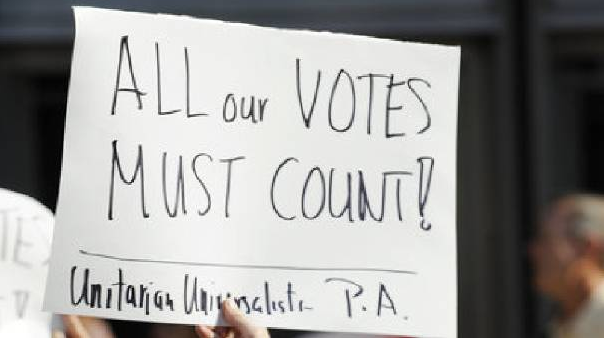 ALL our VOTES
MUST COUNT!
Unitarian Universalists P.A.